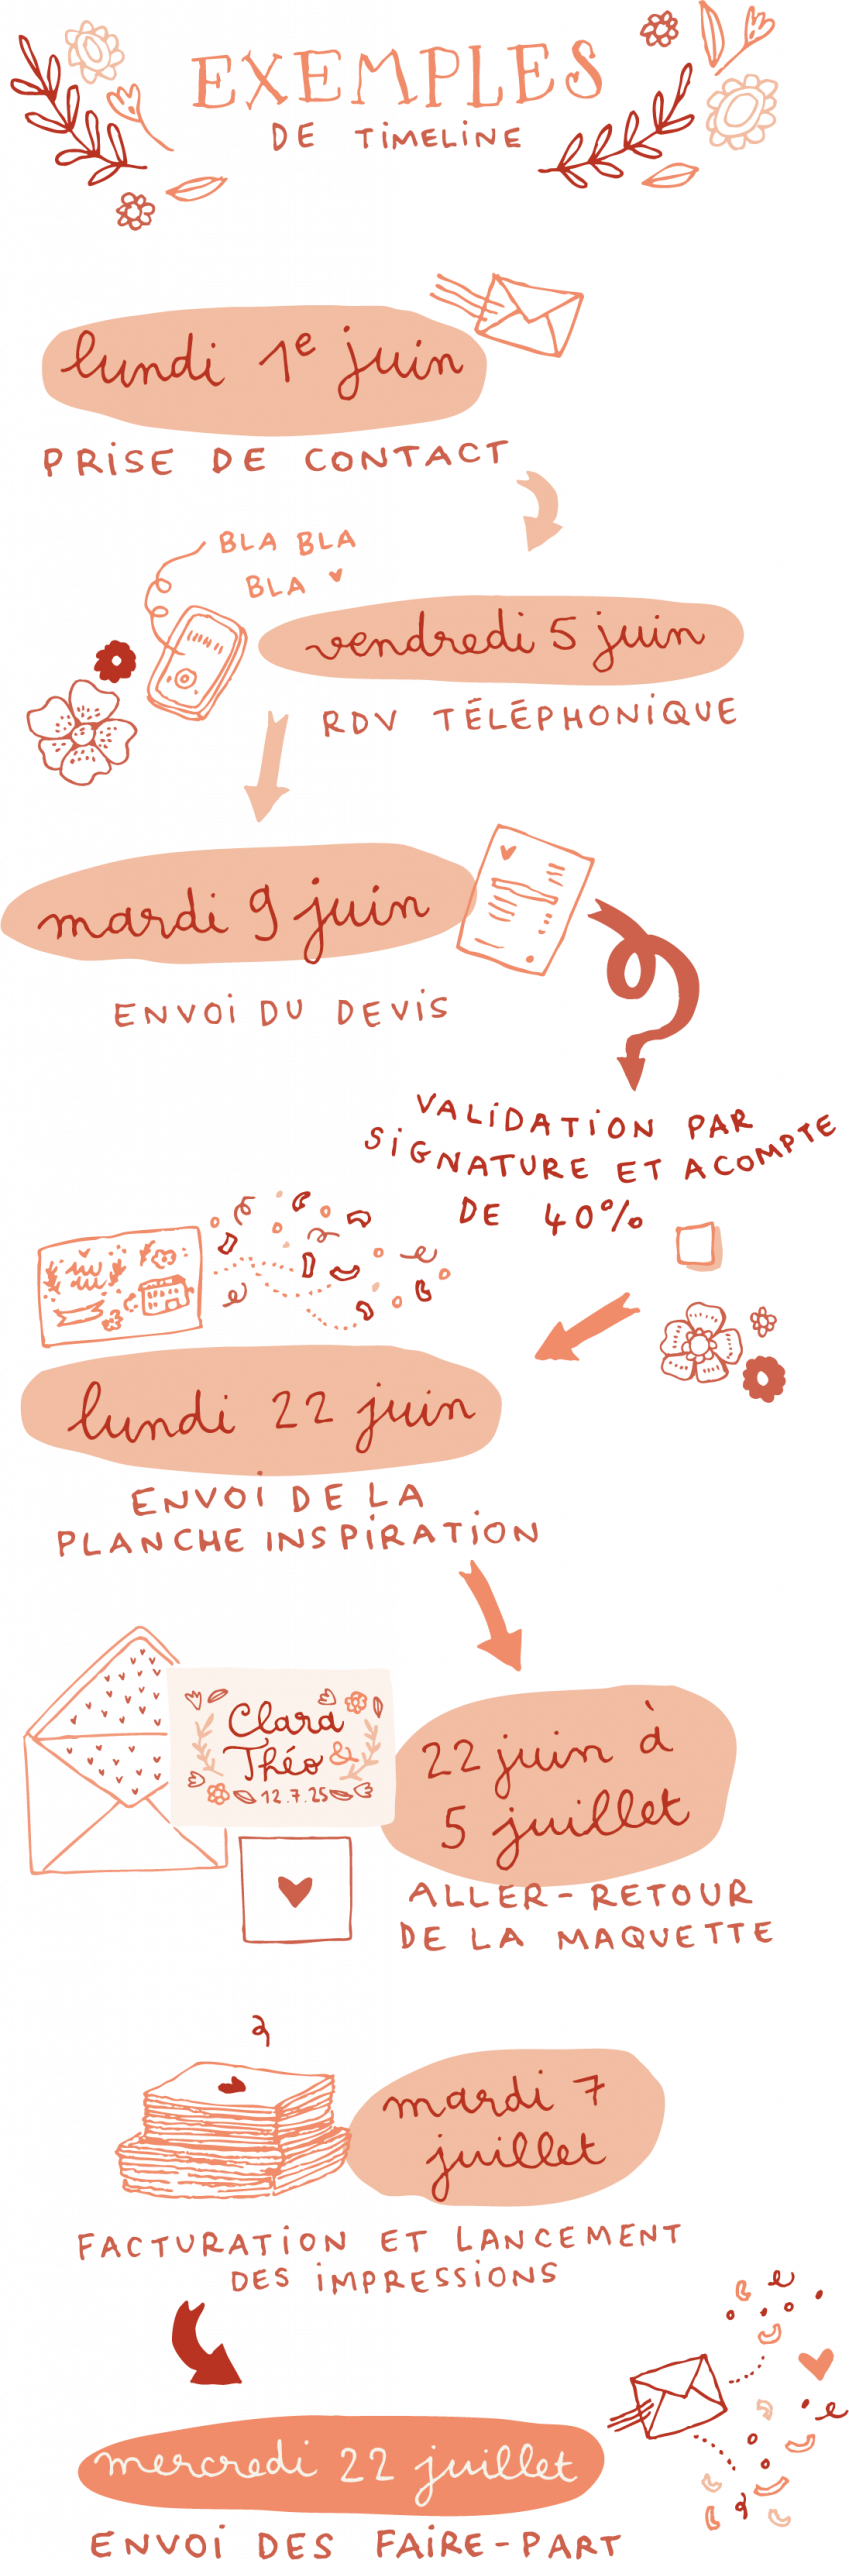 EXEMPLES
DE TIMELINE
lundi 1e juin
PRISE DE CONTACT
BLA BLA
BLA
vendredi 5 juin
RDV TÉLÉPHONIQUE
mardi 9 juin
ENVOI DU DEVIS
VALIDATION PAR
SIGNATURE ET ACOMPTE
DE 40%
lundi 22 juin
ENVOI DE LA
PLANCHE INSPIRATION
Clara
Théo &
12.7.25
22 juin à
5 juillet
ALLER-RETOUR
DE LA MAQUETTE
mardi 7
juillet
FACTURATION ET LANCEMENT
DES IMPRESSIONS
mercredi 22 juillet
ENVOI DES FAIRE-PART